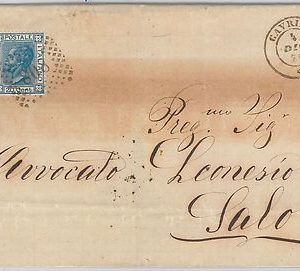 POSTALE
ITALIANO
20 CENT
4
DIC
Preg.mo Sig
Avvocato Leonesio
Salo